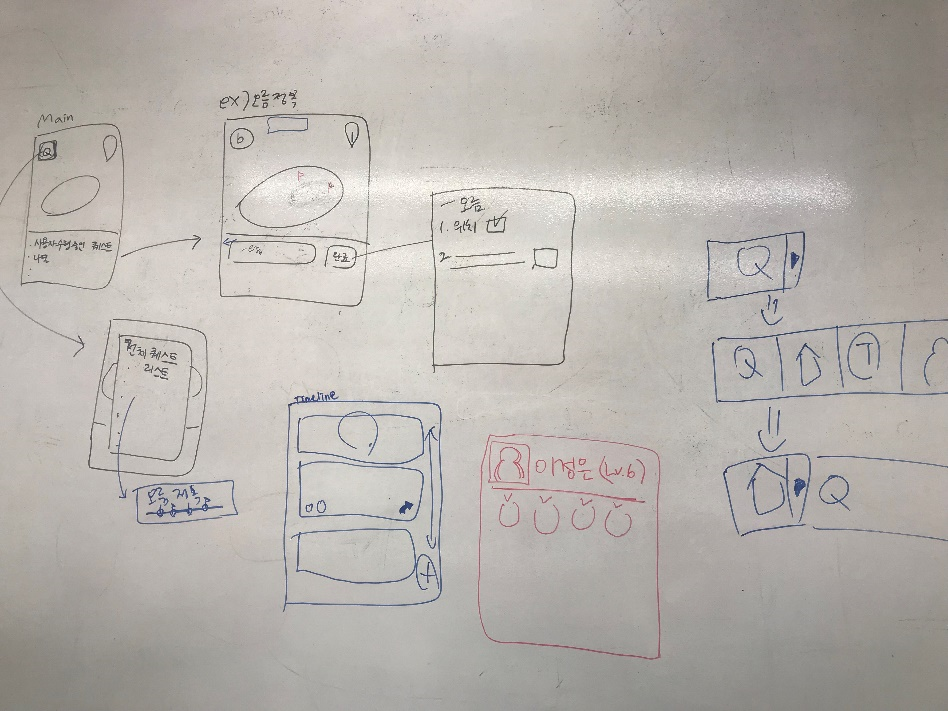 Main
Q
사용자 수행중인 퀘스트
나열
ex) 오름정복
6
완료
오름
1. 위치
2
전체 퀘스트
리스트
Timeline
+
이정은 (Lv.6)
Q
Q
T
Q